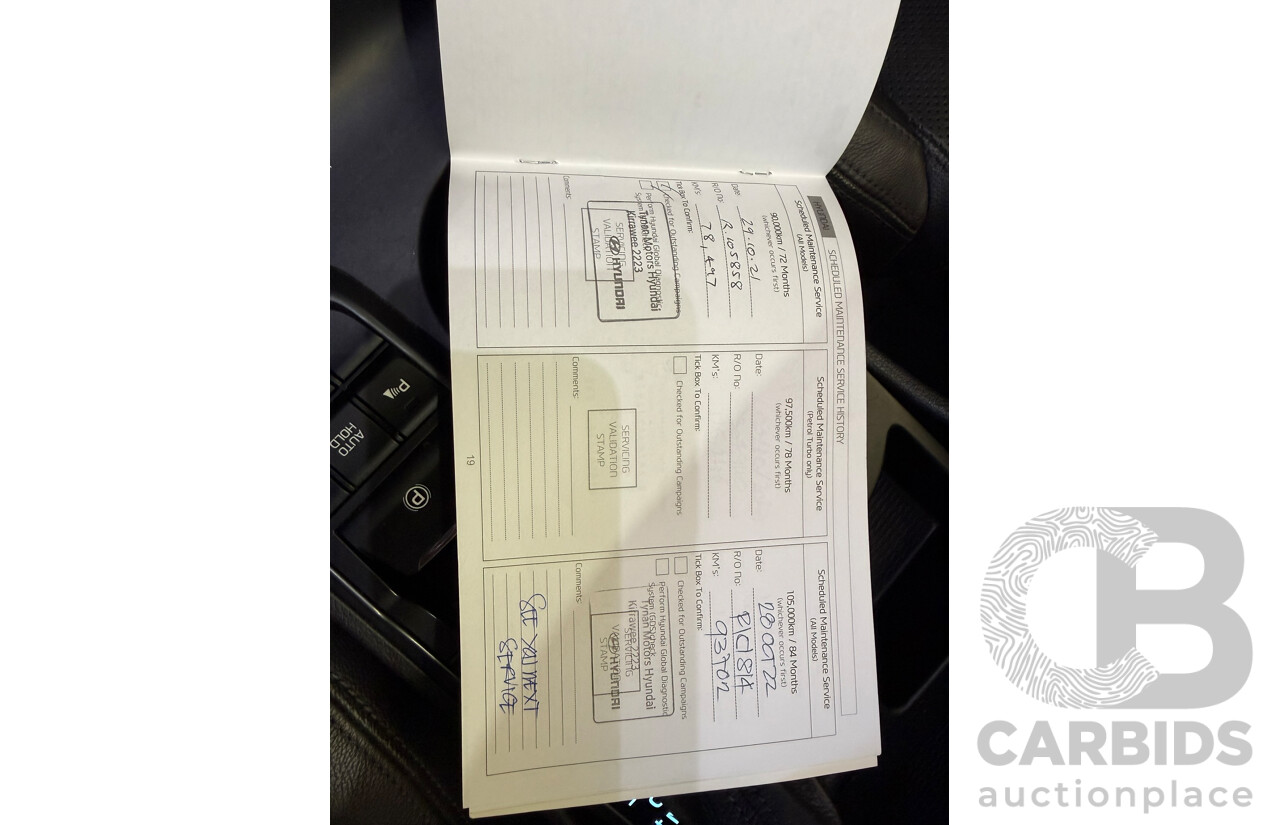 HYUNDAI
SCHEDULED MAINTENANCE SERVICE HISTORY
Scheduled Maintenance Service
(All Models)
90,000km / 72 Months
(whichever occurs first)
Date: 29.10.21
R/O no: R.105858
KM's: 78,497
Tick Box To Confirm:
Checked for Outstanding Campaigns
Perform Hyundai Global Diagnostic
Tynan Motors Hyundai
Kirrawee 2223
HYUNDAI
SERVICING
VALIDATION
STAMP
Comments:
Scheduled Maintenance Service
(Petrol Turbo only)
97,500km / 78 Months
(whichever occurs first)
Date:
R/O no:
KM's:
Tick Box To Confirm:
Checked for Outstanding Campaigns
SERVICING
VALIDATION
STAMP
Comments:
Scheduled Maintenance Service
(All Models)
105,000km / 84 Months
(whichever occurs first)
Date:
R/O no:
KM's:
Tick Box To Confirm:
Checked for Outstanding Campaigns
Perform Hyundai Global Diagnostic
System (GDS) check
Tynan Motors Hyundai
Kirrawee 2223
HYUNDAI
SERVICING
STAMP
Comments:
NEXT
SERVICE
19
P
AUTO
HOLD
P
CB
CARBIDS
auctionplace